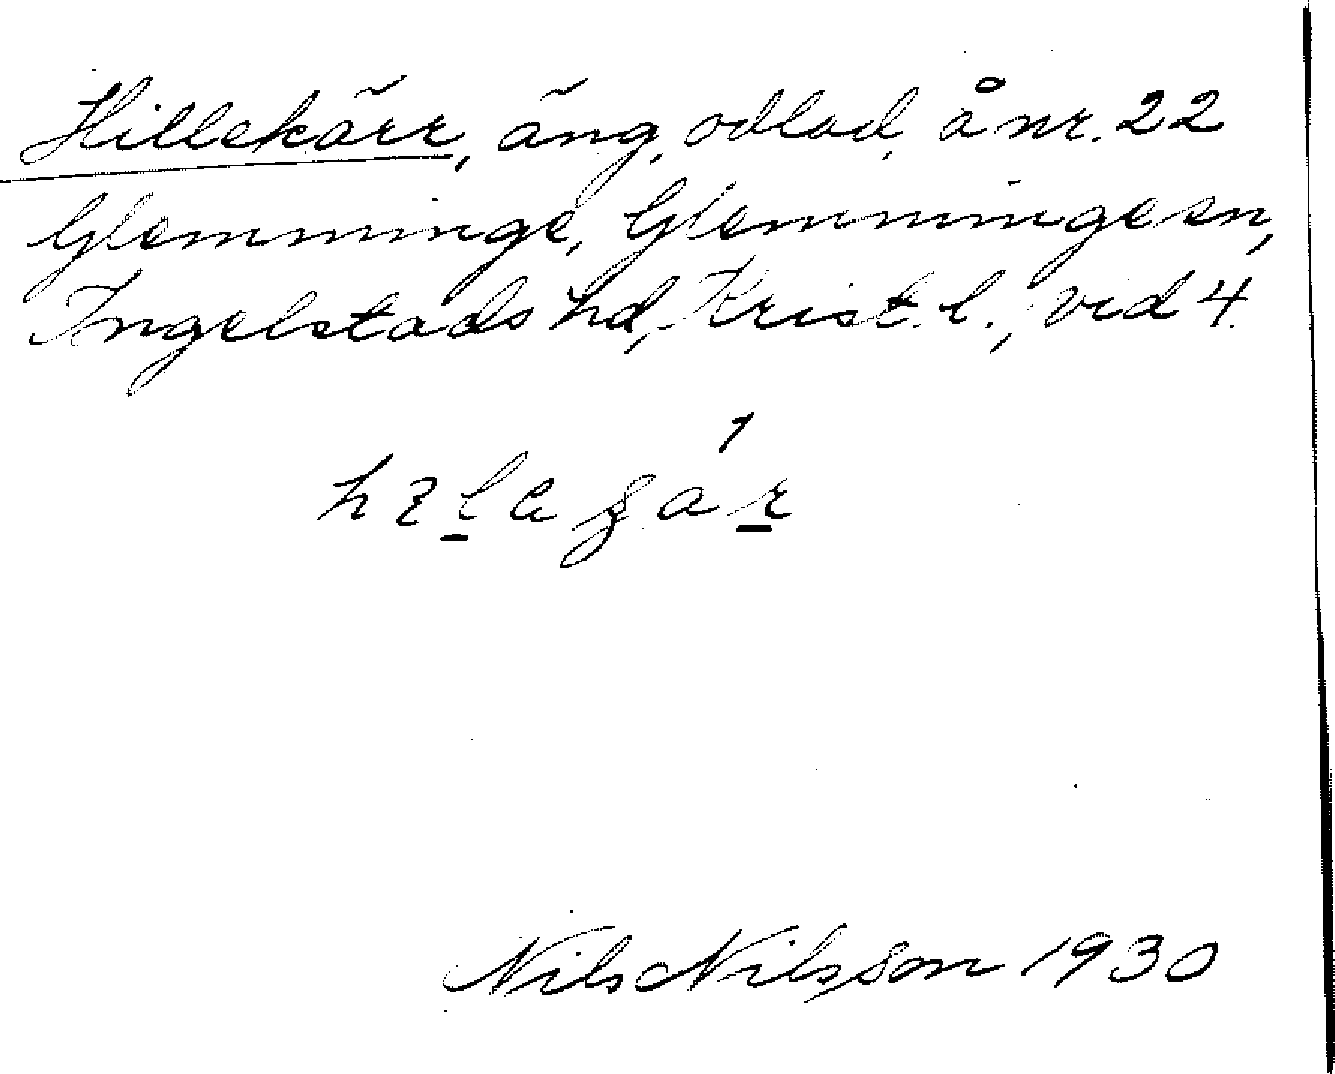 Hillekärr, äng, odlad, å nr. 22
Glemminge, Glemminge sn,
Ingelstads hd, Krist. l., vid 4.
Nils Nilsson 1930